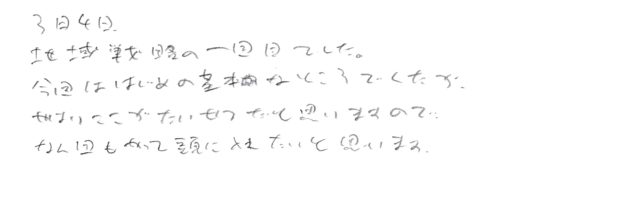 3日4日.
地域戦略の一回目でした。
今回ははじめの基本なところでしたが.
やはりここがたいせつだと思いますので.
なん回もやって頭に入れたいと思います.